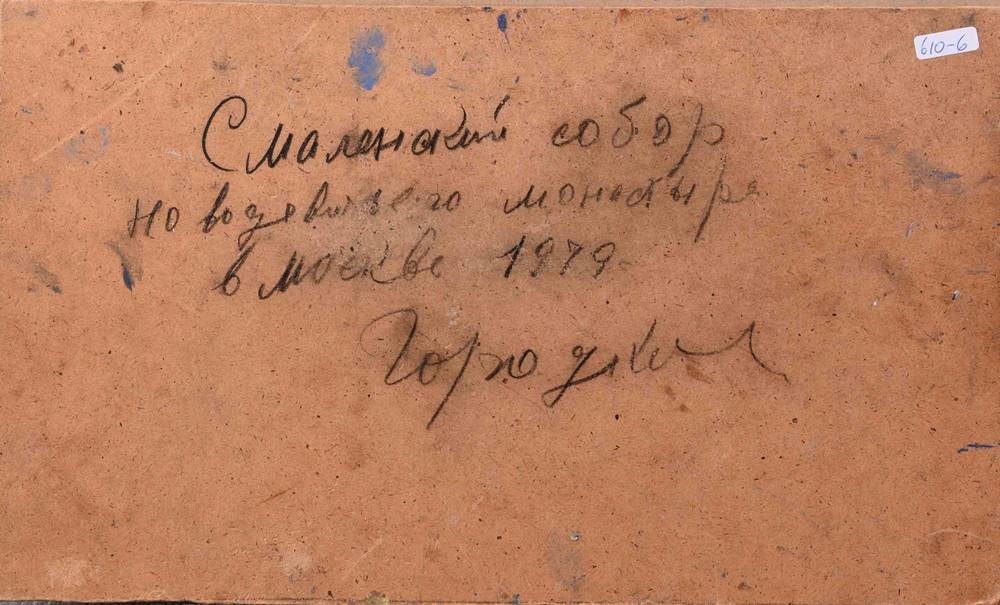 610-6
Смаленский собор
новодевичьего монастыря
в москве 1979